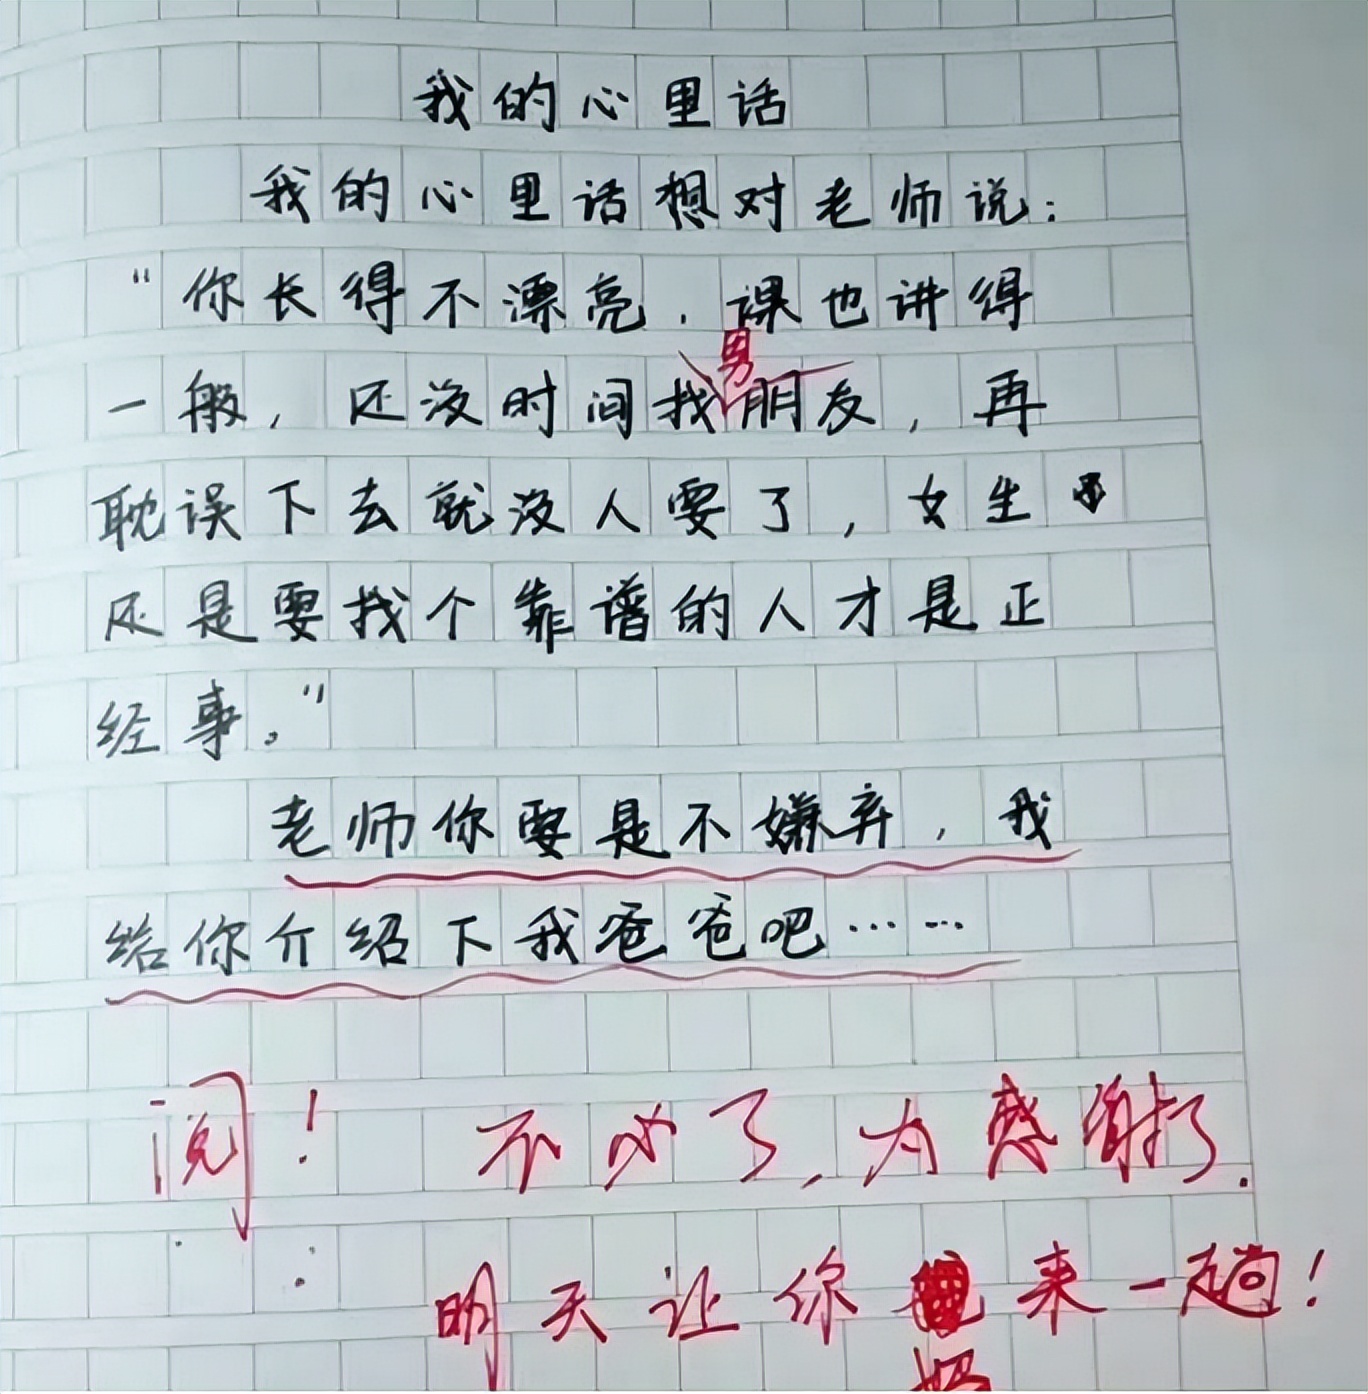 我的心里话
我的心里话想对老师说：
“你长得不漂亮，课也讲得
男
一般，还没时间找朋友，再
耽误下去就没人要了，女生
还是要找个靠谱的人才是正
经事。”
老师你要是不嫌弃，我
给你介绍下我爸爸吧……
阅！ 不必了，太感谢了.
明天让你 来一趟！